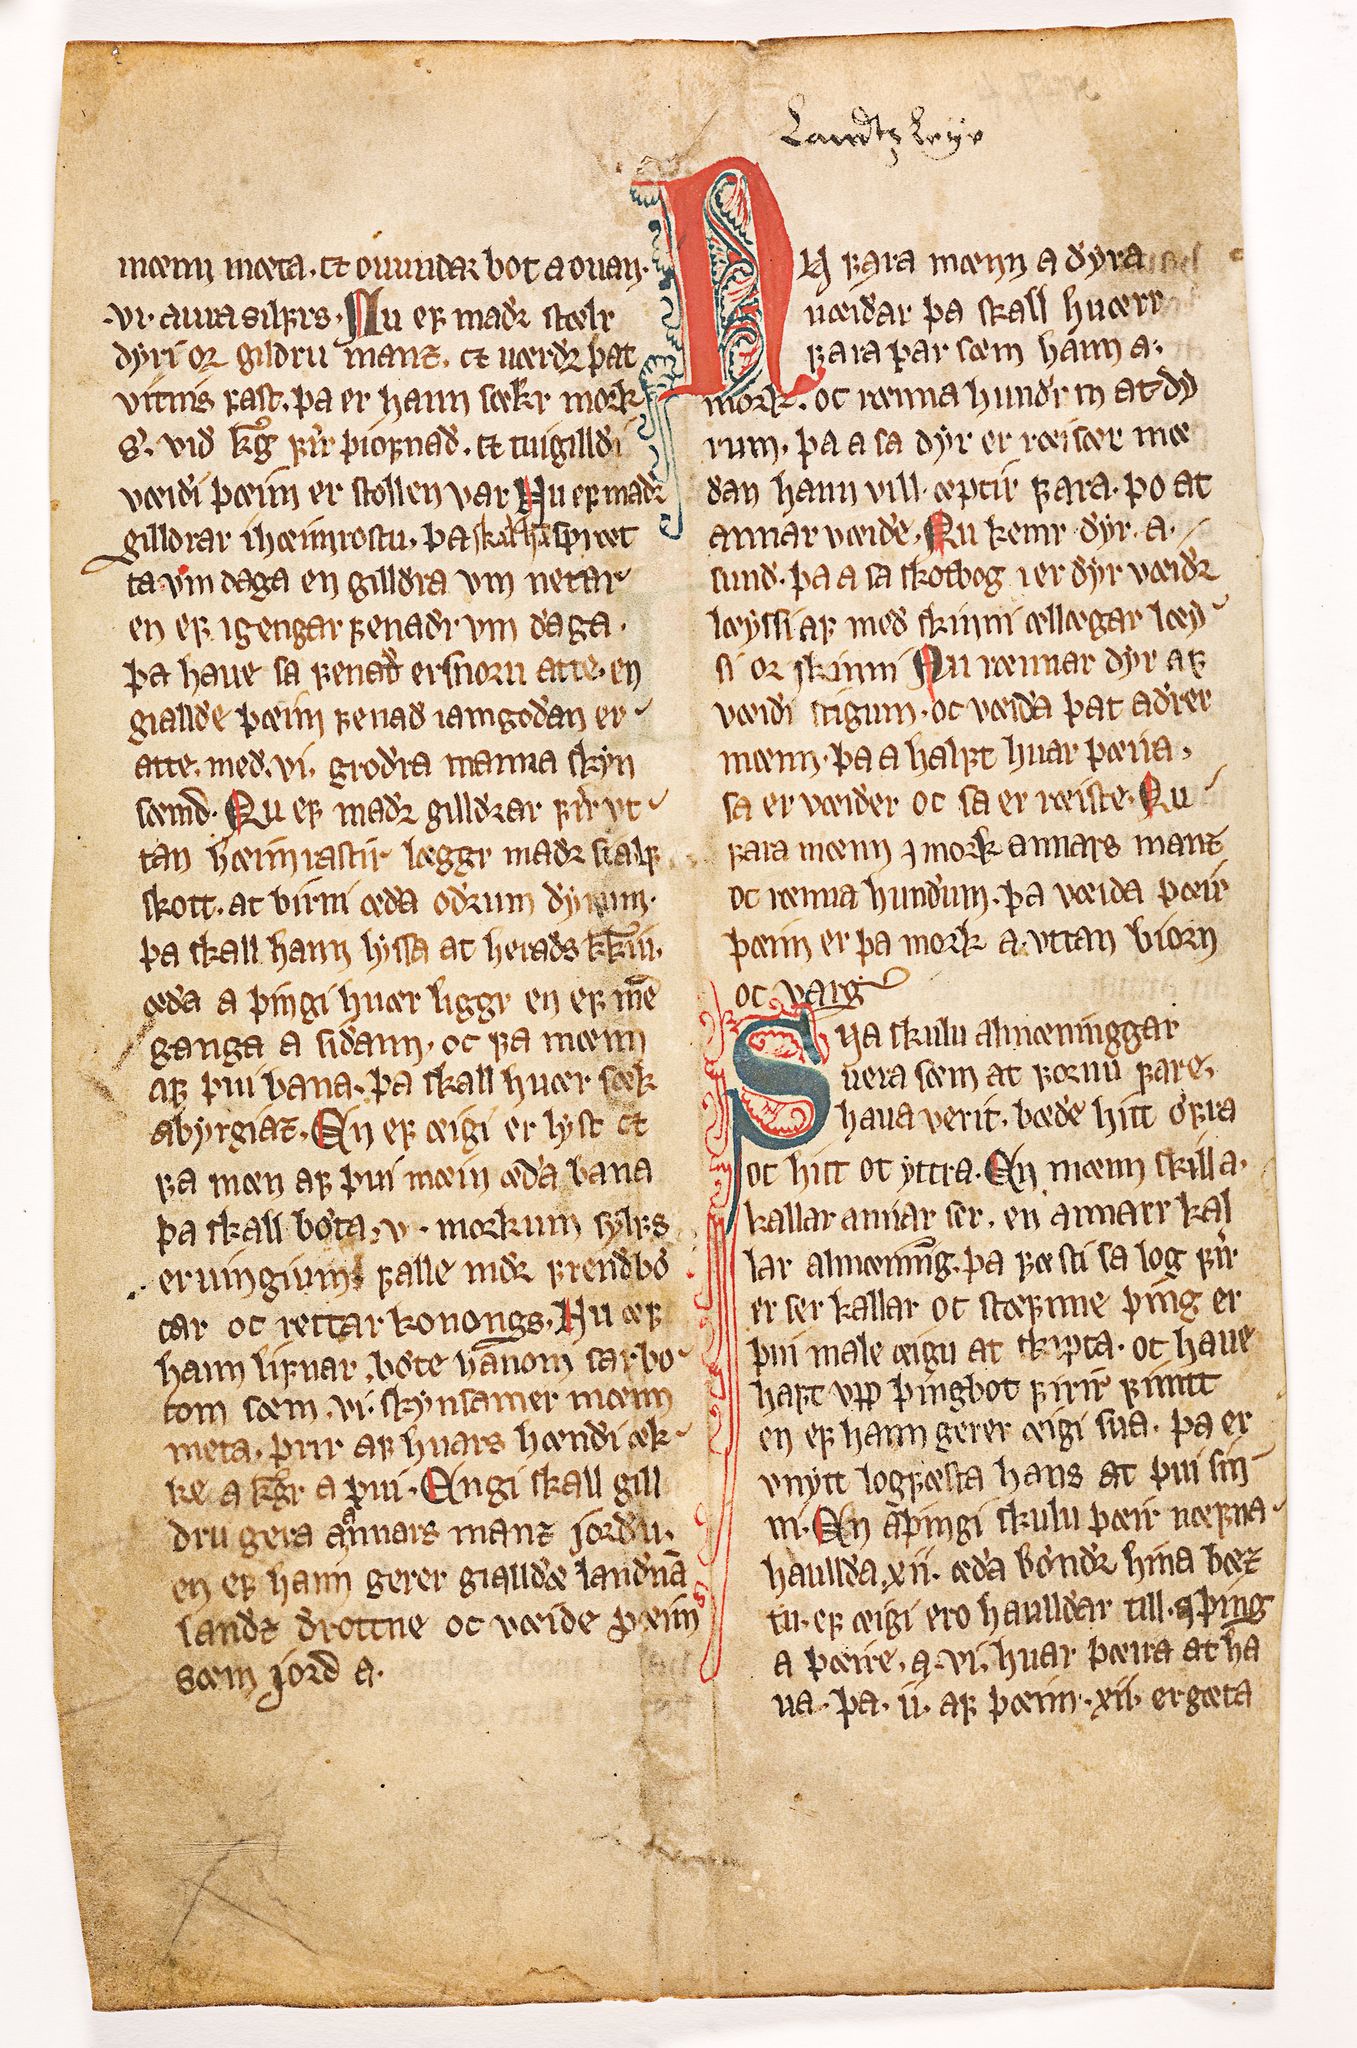 Landtz leye
mænn mæta. et ouundar bot a ouan.
.vi. aura silfrs. Nu ef madr stælr
dyri or gildru manz. et uærdr þat
vitnis fast. þa er hann sækr mork
s'. vid kg fir þiofnad. et tuigilldi
væidi þæim er stollen var Nu ef madr
gilldrar i hæimrostu. þa skal hā spræt
ta vm daga en gilldra vm netar
en ef i gengar fenadr vm daga.
þa haue sa fenad er snoru atte. en
giallde þæim fenad iamgodan er
atte. med. vi. grodra manna skyn
sæmd. Nu ef madr gilldrar fir vt
tan hæimrastir læggr madr sialf
skott. at birni æda odrum dyrum.
þa skall hann lyssa at herads kkiu.
æda a þingi huær liggr en ef mē
ganga a sidann. oc fa mænn
af þui bana. þa skall huær sæk
abyrgiaz. En ef æigi er lyst et
fa mæn af þui mæin æda bana
þa skall bota. v. morkum sylfs
eruingium falle nidr frendbo
tar oc rettar konongs. Nu æf
hann lifnar. bote hānom sarbo
tom sæm. vi. skynsamer mænn
meta. þrir af huars hændi æk
ke a kgr a þui. Engi skall gill
dru gera a annars manz jordu.
en ef hann gerer gialldæ landnā
landz drottne oc væide þæim
sæm jord a.
NU fara mænn a dyra
uæidar þa skall huærr
fara þar sæm hann a.
mork. oc rænna hundr m at dy
rum. þa a sa dyr er ræiser mæ
dan hann vill æptir fara. þo at
annar væide. Nu kemr dyr. a.
sund. þa a sa skotbog i er dyr væidr
læyssi af med skinni ællægar læy
si or skinni Nu rænnar dyr af
væidi stigum. oc væida þat adrer
mænn. þa a halft huar þæira.
sa er væider oc sa er ræiste. Nu
fara mænn j mork annars manz
oc rænna hundum. þa væida þæir
þæim er þa mork a. vttan biorn
oc varg
SUa skulu almænninggar
uera sæm at fornu fare.
haua verit. bæde hitt ofra
oc hitt ot yttra. En mænn skill a.
kallar annar ser. en annarr kal
lar almænnīg. þa fæsti sa log fir
er ser kallar oc stæfnne þing er
þui male æigu at skipta. oc haue
haft vpp þingbot firir fimtt
en ef hann gerer æigi sua. þa er
vnytt logfæsta hans at þui sin
ni. En a þingi skulu þæir næfna
haullda. xii. æda bondr hina bæz
tu. ef æigi ero haulldar till. a þing
a þæire. a. vi. huar þæira at ha
ua. þa. ii. af þæim. xii. er gæta